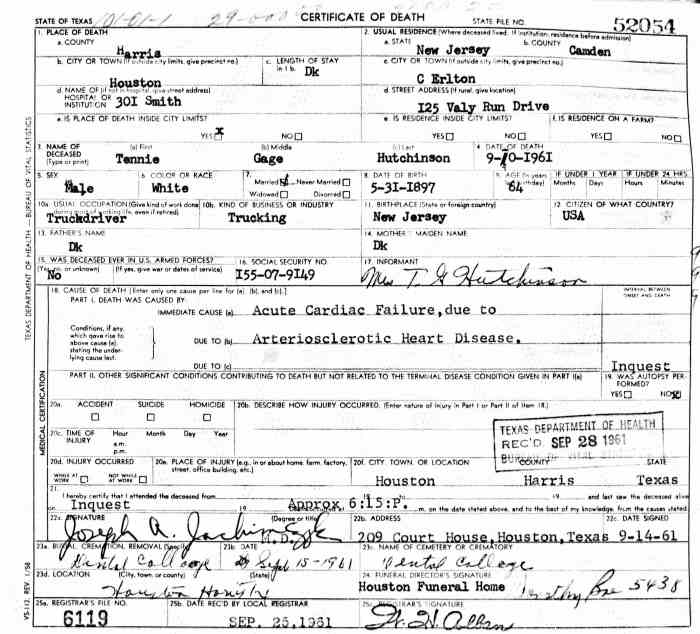 STATE OF TEXAS
CERTIFICATE OF DEATH
STATE FILE NO.
52054
1. PLACE OF DEATH
a. COUNTY
Harris
2. USUAL RESIDENCE (Where deceased lived. If institution: residence before admission)
a. STATE
New Jersey
b. COUNTY
Camden
b. CITY OR TOWN (If outside city limits, give precinct no.)
Houston
c. LENGTH OF STAY
in 1 b.
Dk
c. CITY OR TOWN (If outside city limits, give precinct no.)
C Erlton
d. NAME OF (If not in hospital, give street address)
HOSPITAL OR
INSTITUTION
30I Smith
d. STREET ADDRESS (If rural, give location)
I25 Valy Run Drive
e. IS PLACE OF DEATH INSIDE CITY LIMITS?
YES x NO
e. IS RESIDENCE INSIDE CITY LIMITS?
YES NO
f. IS RESIDENCE ON A FARM?
YES NO
3. NAME OF
DECEASED
(Type or print)
(a) First
Tennie
(b) Middle
Gage
(c) Last
Hutchinson
4. DATE OF DEATH
9-10-I96I
5. SEX
Male
6. COLOR OR RACE
White
7.
Married Never Married
Widowed Divorced
8. DATE OF BIRTH
5-3I-I897
9. AGE (In years
birthday)
64
IF UNDER 1 YEAR
Months Days
IF UNDER 24 HRS.
Hours Minutes
10a. USUAL OCCUPATION (Give kind of work done
during most of working life, even if retired)
Truckdriver
10b. KIND OF BUSINESS OR INDUSTRY
Trucking
11. BIRTHPLACE (State or foreign country)
New Jersey
12. CITIZEN OF WHAT COUNTRY?
USA
13. FATHER'S NAME
Dk
14. MOTHER'S MAIDEN NAME
Dk
15. WAS DECEASED EVER IN U.S. ARMED FORCES?
(Yes, no, or unknown) (If yes, give war or dates of service)
No
16. SOCIAL SECURITY NO.
I55-07-9I49
17. INFORMANT
Mrs T. G Hutchinson
18. CAUSE OF DEATH [Enter only one cause per line for (a), (b), and (c).]
PART I. DEATH WAS CAUSED BY:
IMMEDIATE CAUSE (a)
Acute Cardiac Failure,due to
INTERVAL BETWEEN
ONSET AND DEATH
Conditions, if any,
which gave rise to
above cause (a),
stating the under-
lying cause last.
DUE TO (b)
Arteriosclerotic Heart Disease.
DUE TO (c)
Inquest
PART II. OTHER SIGNIFICANT CONDITIONS CONTRIBUTING TO DEATH BUT NOT RELATED TO THE TERMINAL DISEASE CONDITION GIVEN IN PART I(a)
19. WAS AUTOPSY PER-
FORMED?
YES NO
20a.
ACCIDENT SUICIDE HOMICIDE
20b. DESCRIBE HOW INJURY OCCURRED. (Enter nature of injury in Part I or Part II of item 18.)
20c. TIME OF
INJURY
Hour Month Day Year
a.m.
p.m.
TEXAS DEPARTMENT OF HEALTH
REC'D SEP 28 1961
20d. INJURY OCCURRED
WHILE AT
WORK
NOT WHILE
AT WORK
20e. PLACE OF INJURY (e.g., in or about home, farm, factory,
street, office building, etc.)
20f. CITY, TOWN, OR LOCATION
Houston
COUNTY
Harris
STATE
Texas
21.
I hereby certify that I attended the deceased from
19
and last saw the deceased alive
Inquest
Approx 6:15:P.
m. on the date stated above, and to the best of my knowledge, from the causes stated.
22a. SIGNATURE
(Degree or title)
M.D.
22b. ADDRESS
209 Court House,Houston,Texas
22c. DATE SIGNED
9-14-61
23a. BURIAL, CREMATION, REMOVAL (Specify)
Dental College
23b. DATE
Sept 15-1961
23c. NAME OF CEMETERY OR CREMATORY
Dental College
23d. LOCATION
(City, town, or county)
(State)
24. FUNERAL DIRECTOR'S SIGNATURE
Houston Funeral Home
5438
25a. REGISTRAR'S FILE NO.
6119
25b. DATE REC'D BY LOCAL REGISTRAR
SEP. 25,1961
25c. REGISTRAR'S SIGNATURE
TEXAS DEPARTMENT OF HEALTH — BUREAU OF VITAL STATISTICS
MEDICAL CERTIFICATION
VS-112, REV. 1/58